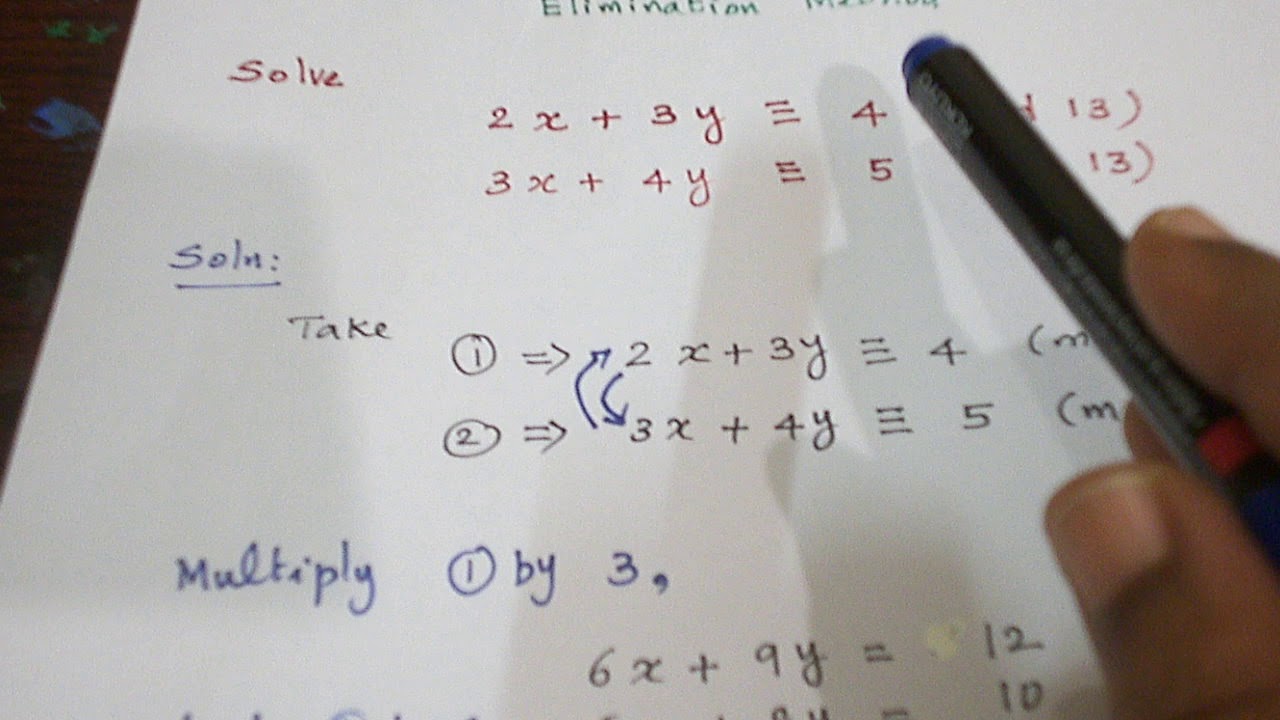 Elimination Method
Solve
2x + 3y ≡ 4 13)
3x + 4y ≡ 5 13)
Soln:
Take
① => 2x + 3y ≡ 4 (m
② => 3x + 4y ≡ 5 (m
Multiply ① by 3,
6x + 9y = 12
10